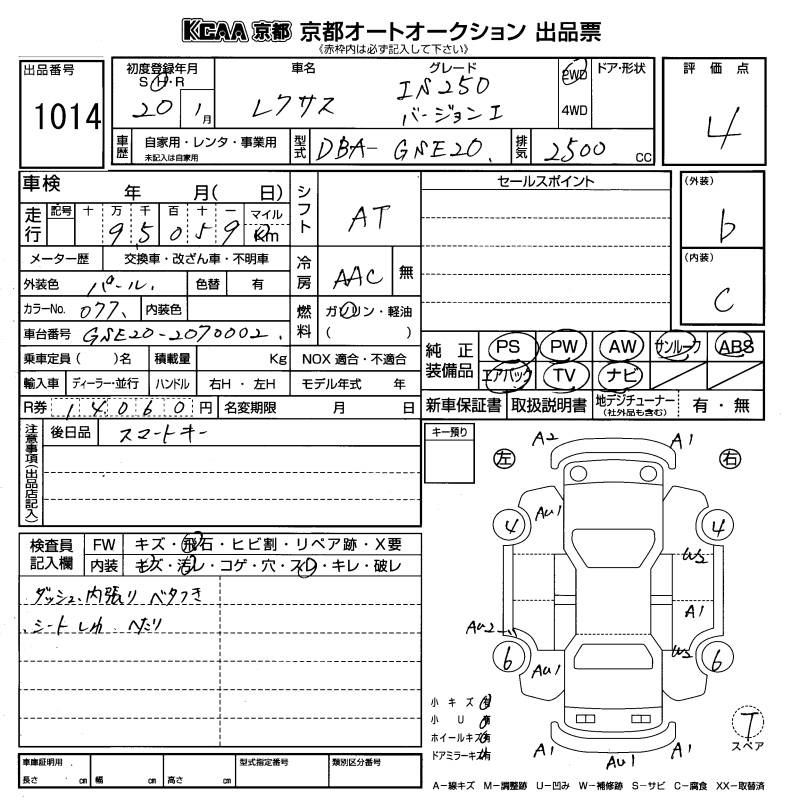 KCAA 京都 京都オートオークション 出品票
《赤枠内は必ず記入して下さい》
出品番号 1014
初度登録年月 S・H・R 20 1月
車名 レクサス
グレード IS250 バージョンI
2WD 4WD
ドア・形状
評価点 4
車歴 自家用・レンタ・事業用 未記入は自家用
型式 DBA-GSE20.
排気 2500 cc
車検 年 月( 日)
シフト AT
セールスポイント
(外装) b
走行 記号 十 万 千 百 十 一 マイル
9 5 0 5 9 km
メーター歴 交換車・改ざん車・不明車
冷房 AAC 無
(内装) C
外装色 パール. 色替 有
カラーNo. 077. 内装色
燃料 ガソリン・軽油 ( )
車台番号 GSE20-2070002.
純正装備品 PS PW AW サンルーフ ABS
エアバック TV ナビ
乗車定員 ( )名 積載量 Kg NOX 適合・不適合
輸入車 ディーラー・並行 ハンドル 右H・左H モデル年式 年
R券 14060円 名変期限 月 日
新車保証書 取扱説明書 地デジチューナー (社外品も含む) 有・無
注意事項(出品店記入)
後日品 スマートキー
キー預り
左 右
A2 A1
AU1
4 4
W2
A1
AU2
W2
6 6
AU1
A1 AU1 A1
検査員記入欄 FW キズ・飛石・ヒビ割・リペア跡・X要
内装 キズ・汚レ・コゲ・穴・スレ・キレ・破レ
ダッシュ、内張り ベタつき
シート しわ へたり
小キズ 有
小U 有
ホイールキズ 有
ドアミラーキズ 有
T スペア
車庫証明用 型式指定番号 類別区分番号
長さ cm 幅 cm 高さ cm
A-線キズ M-調整跡 U-凹み W-補修跡 S-サビ C-腐食 XX-取替済